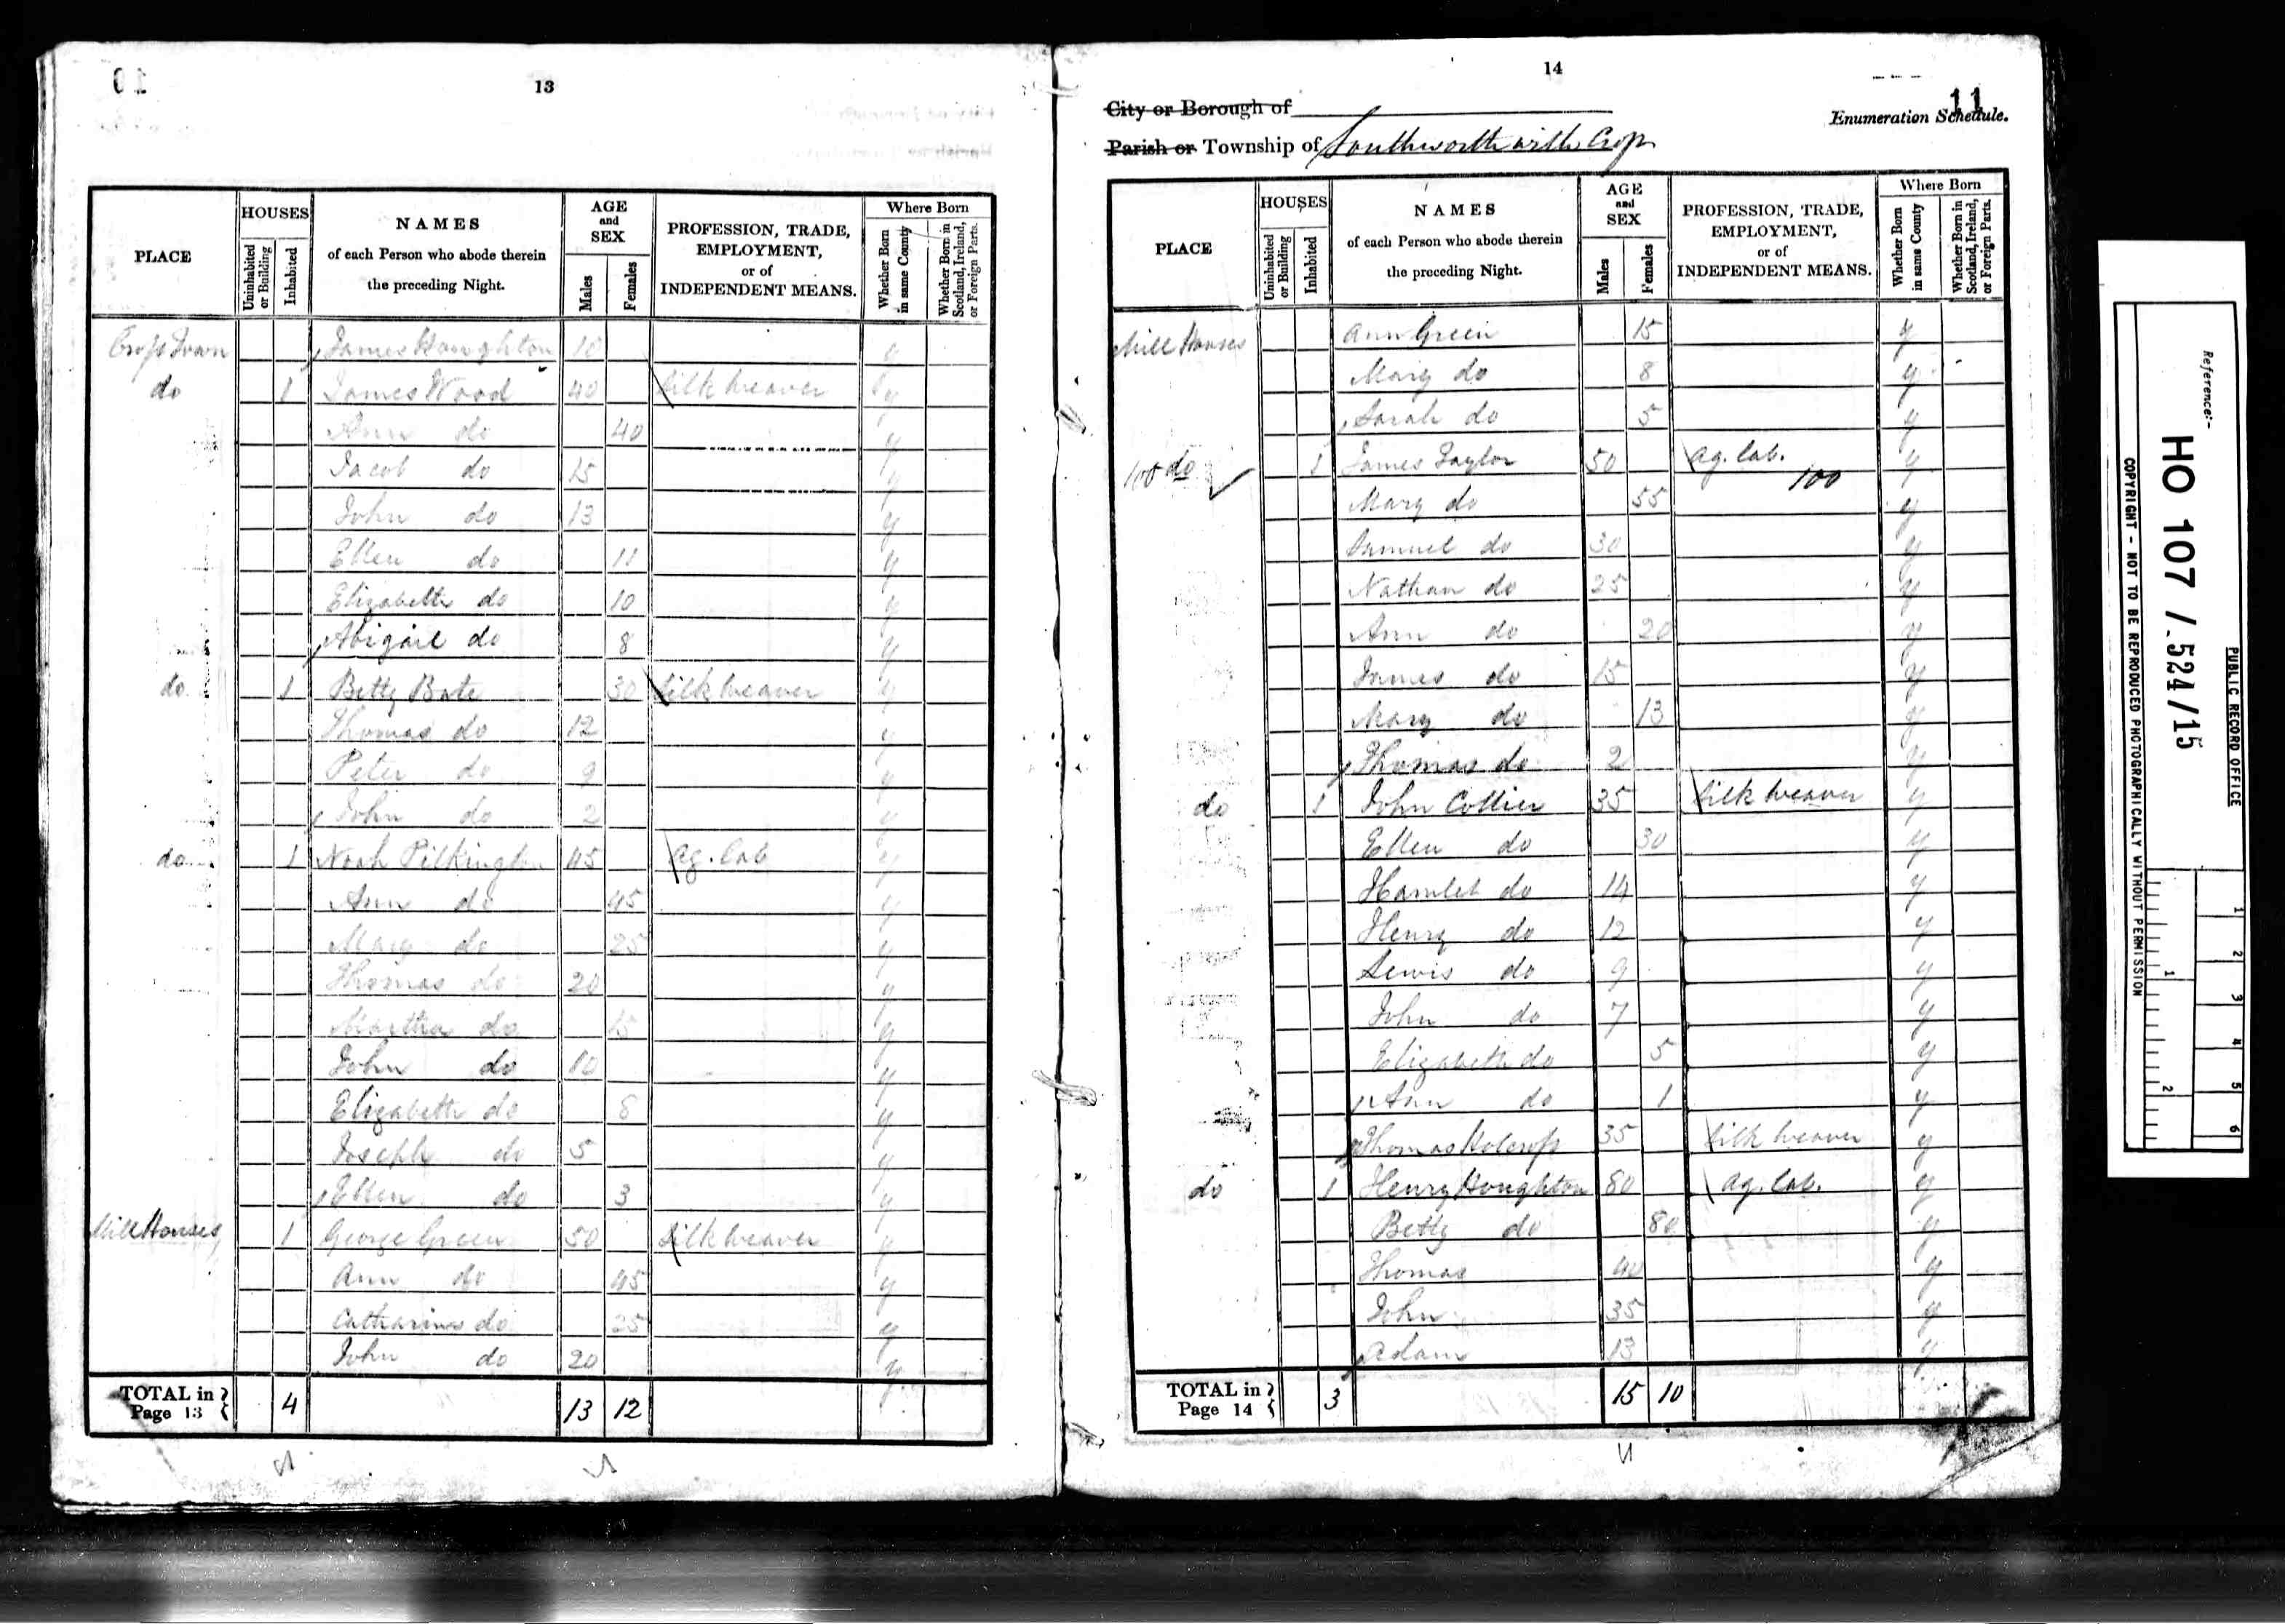 13
PLACE
HOUSES
Uninhabited or Building
Inhabited
NAMES
of each Person who abode therein
the preceding Night.
AGE
and
SEX
Males
Females
PROFESSION, TRADE,
EMPLOYMENT,
or of
INDEPENDENT MEANS.
Where Born
Whether Born in same County
Whether Born in Scotland, Ireland, or Foreign Parts.
James Houghton y
do 1 James Wood 40 Silk Weaver y
Ann do 40 y
Jacob do 15 y
John do 13 y
Ellen do 11 y
Elizabeth do 10 y
Abigail do 8 y
do 1 Betty Bate 30 Silk Weaver y
Thomas do 12 y
Peter do 9 y
John do 2 y
do 1 Noah Pilkington 45 Ag. Lab y
Ann do 45 y
Mary do 25 y
Thomas do 20 y
Martha do 15 y
John do 10 y
Elizabeth do 8 y
Joseph do 5 y
Ellen do 3 y
Mill Houses 1 George Green 50 Silk Weaver y
Ann do 45 y
Catharine do 25 y
John do 20 y
TOTAL in Page 13 4 13 12
14
11
City or Borough of
Enumeration Schedule.
Parish or Township of Southworth with Croft
PLACE
HOUSES
Uninhabited or Building
Inhabited
NAMES
of each Person who abode therein
the preceding Night.
AGE
and
SEX
Males
Females
PROFESSION, TRADE,
EMPLOYMENT,
or of
INDEPENDENT MEANS.
Where Born
Whether Born in same County
Whether Born in Scotland, Ireland, or Foreign Parts.
Mill Houses Ann Green 15 y
Mary do 8 y
Sarah do 5 y
do 1 James Taylor 50 Ag. Lab. y
100
Mary do 55 y
Samuel do 30 y
Nathan do 25 y
Ann do 20 y
James do 15 y
Mary do 13 y
Thomas do 2 y
do 1 John Collier 35 Silk Weaver y
Ellen do 30 y
Hamlet do 14 y
Henry do 12 y
Lewis do 9 y
John do 7 y
Elizabeth do 5 y
Ann do 1 y
Thomas Holcroft 35 Silk Weaver y
do 1 Henry Houghton 80 Ag. Lab. y
Betty do 80 y
Thomas 40 y
John 35 y
Adam 13 y
TOTAL in Page 14 3 15 10
Reference:-
HO 107 / 524/15
PUBLIC RECORD OFFICE
COPYRIGHT - NOT TO BE REPRODUCED PHOTOGRAPHICALLY WITHOUT PERMISSION
1 2 3 4 5 6
1 2